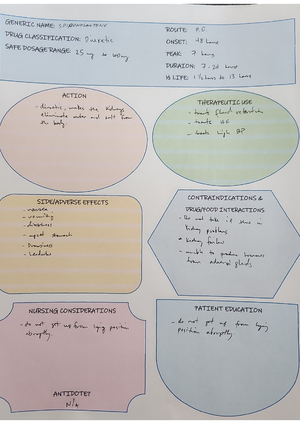 GENERIC NAME: SPIRONOLACTONE
DRUG CLASSIFICATION: Diuretic
SAFE DOSAGE RANGE: 25 mg to
ROUTE: P.O.
ONSET: 48 hours
PEAK: 7 hours
DURAION: 7-24 hours
½ LIFE: 1½ hours to 13 hours
ACTION
- diuretic, makes the kidneys
eliminate water and salt from
the body
THERAPEUTIC USE
- treats fluid retention
- treats HF
- treats high BP
SIDE/ADVERSE EFFECTS
- nausea
- vomiting
- dizziness
- upset stomach
- Drowsiness
- headaches
CONTRAINDICATIONS &
DRUG/FOOD INTERACTIONS
- Do not take if there is
kidney problems
- kidney failure
- unable to produce hormones
from adrenal glands
NURSING CONSIDERATIONS
- do not get up from lying position
abruptly.
ANTIDOTE?
N/A
PATIENT EDUCATION
- do not get up from lying
position abruptly.